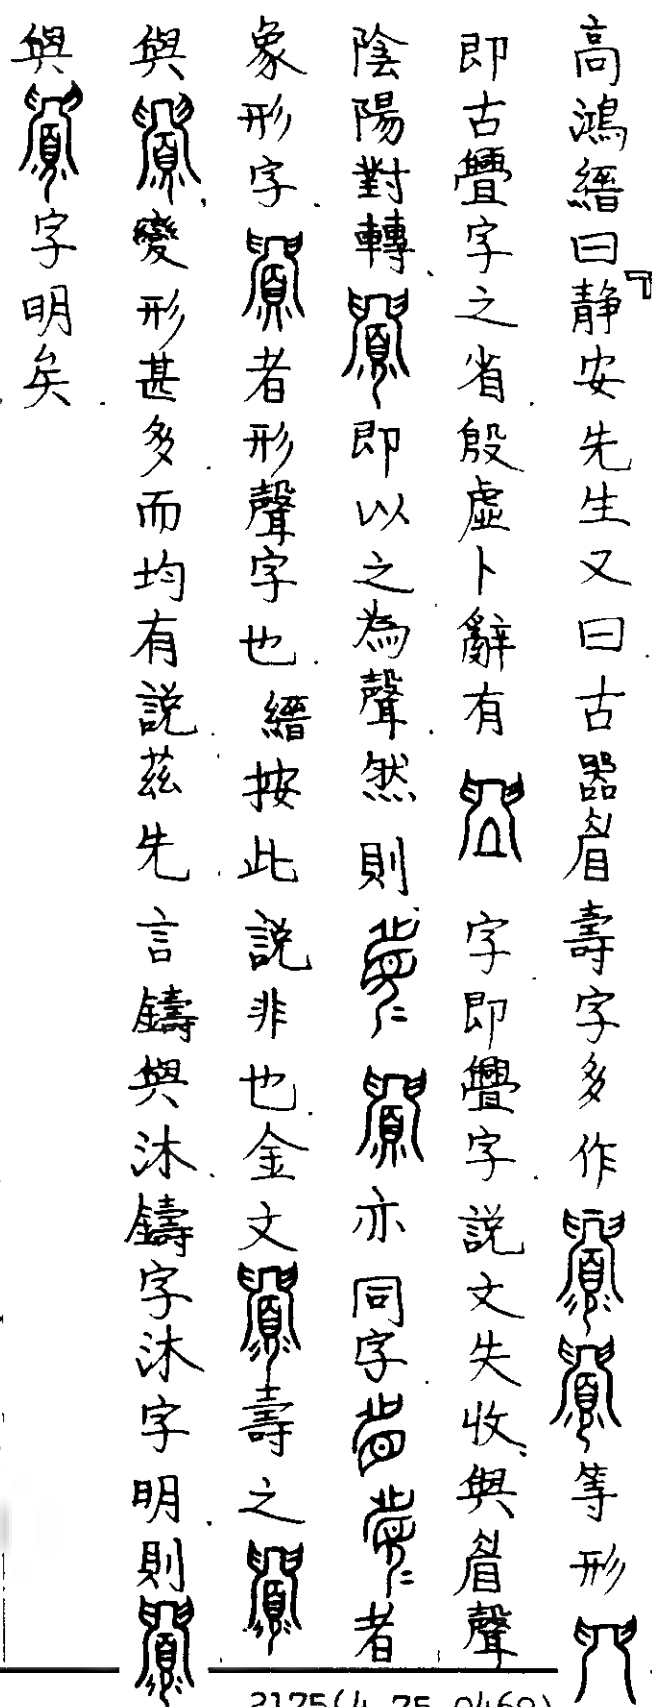 高鴻縉曰「静安先生又曰古器眉壽字多作等形
即古舋字之省殷虛卜辭有字即舋字説文失收與眉聲
陰陽對轉即以之為聲然則亦同字者
象形字者形聲字也縉按此説非也金文壽之
與變形甚多而均有説茲先言鑄與沐鑄字沐字明則
與字明矣
2175(4.75-0469)